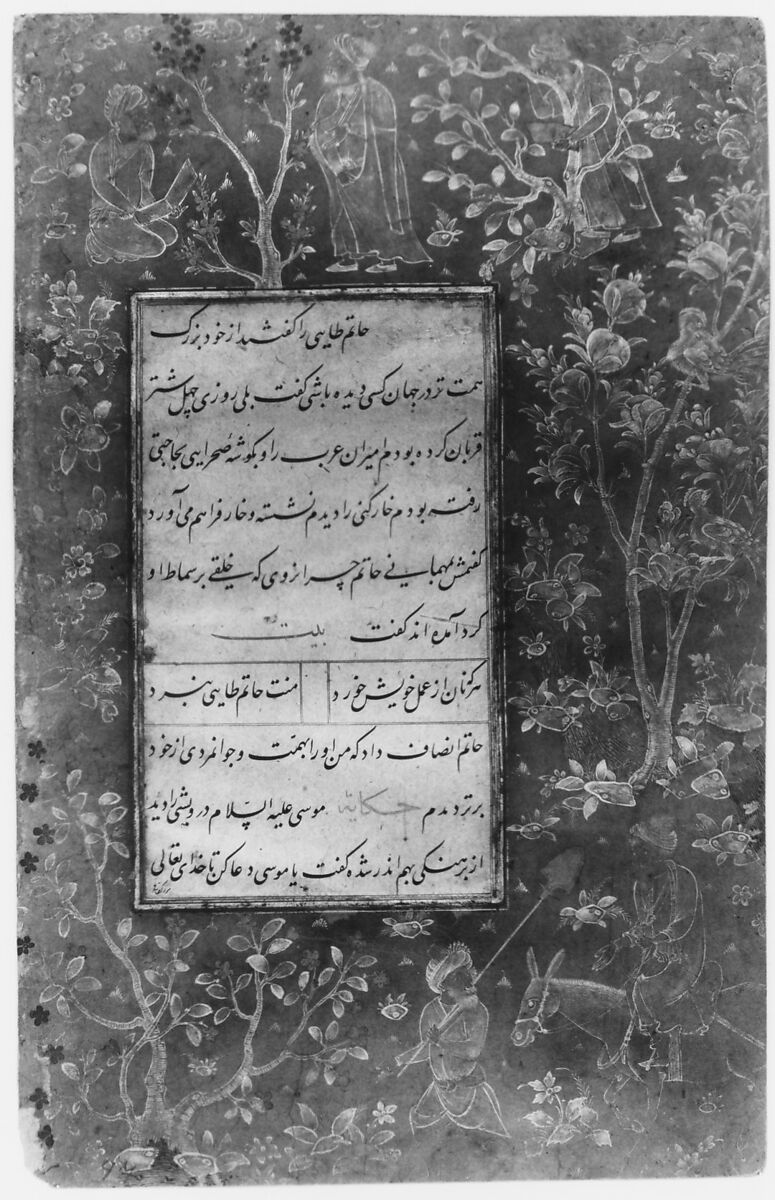 حاتم طایی را گفتند از خود بزرگ
همت تر در جهان کسی دیده باشی گفت بلی روزی چهل شتر
قربان کرده بودم امیران عرب را و بگوشه صحرایی بحاجتی
رفته بودم خارکنی را دیدم نشسته و خار فراهم می آورد
گفتمش بمهمانی حاتم چرا نروی که خلقی بر سماط او
گرد آمده اند گفت بیت
هر که نان از عمل خویش خورد منت حاتم طایی نبرد
حاتم انصاف داد که من او را بهمت و جوانمردی از خود
برتر دیدم حکایة موسی علیه السلام درویشی را دید
از برهنگی بهم اندر شده گفت یا موسی دعا کن تا خدای تعالی